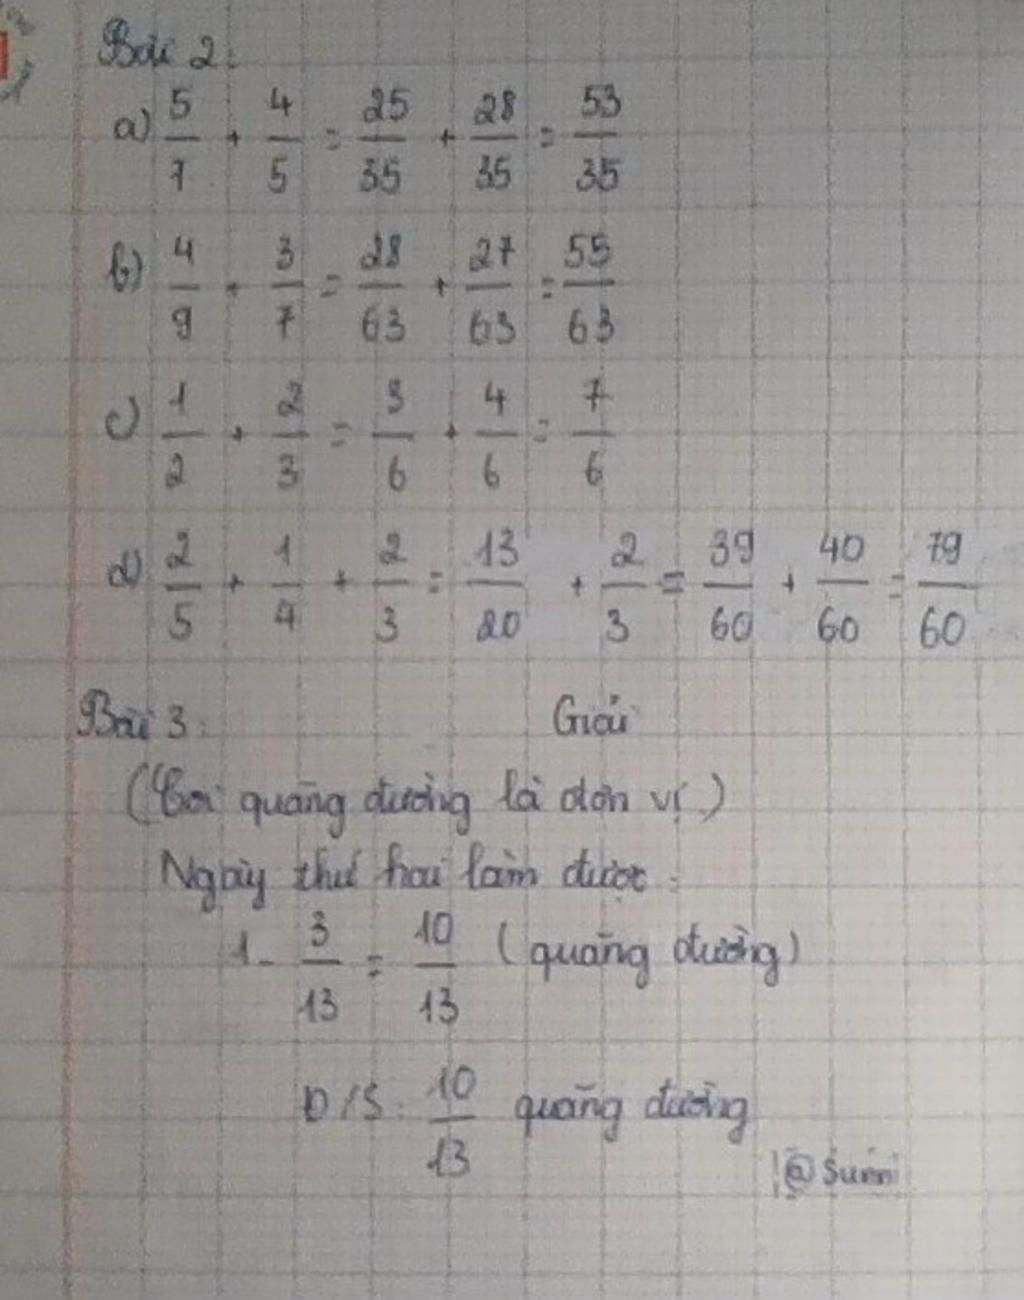 Bài 2:
a) 5/7 + 4/5 = 25/35 + 28/35 = 53/35
b) 4/9 + 3/7 = 28/63 + 27/63 = 55/63
c) 1/2 + 2/3 = 3/6 + 4/6 = 7/6
d) 2/5 + 1/4 + 2/3 = 13/20 + 2/3 = 39/60 + 40/60 = 79/60
Bài 3: Giải
(Coi quãng đường là đơn vị)
Ngày thứ hai làm được:
1 - 3/13 = 10/13 (quãng đường)
Đ/S: 10/13 quãng đường
@Sunni